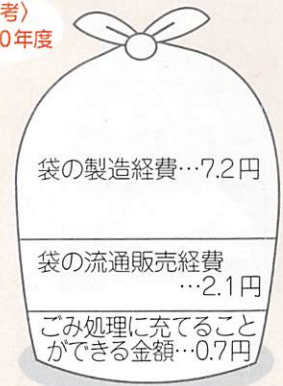 考〉
0年度
袋の製造経費…7.2円
袋の流通販売経費
…2.1円
ごみ処理に充てること
ができる金額…0.7円